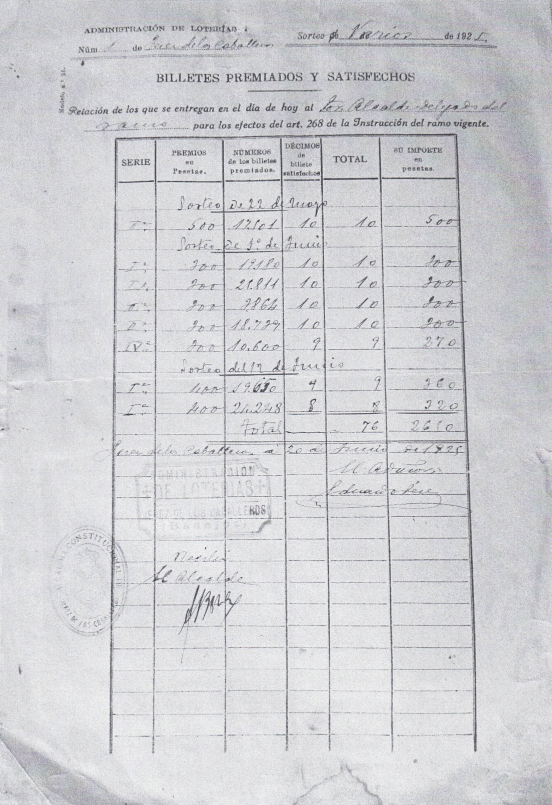 ADMINISTRACIÓN DE LOTERÍAS
Núm. 1 de Jerez de los Caballeros
Sorteo de Varios de 1925
Modelo n.º 21.
BILLETES PREMIADOS Y SATISFECHOS
Relación de los que se entregan en el día de hoy al Sor. Alcalde delegado del
ramo para los efectos del art. 268 de la Instrucción del ramo vigente.
SERIE PREMIOS en Pesetas. NÚMEROS de los billetes premiados. DÉCIMOS de billete satisfechos TOTAL SU IMPORTE en pesetas.
Sorteo de 22 de Mayo
1ª 500 17.501 10 10 500
Sorteo de 1º de Junio
300 10 10 300
300 10 10 300
300 10 10 300
300 18.729 10 10 300
300 10.600 9 9 270
Sorteo del 12 de Junio
1ª 400 9 9 360
1ª 400 24.248 8 8 320
Total 76 2650
Jerez de los Caballeros a 20 de Junio de 1925
El Admor
Eduardo Perez
ADMINISTRACIÓN
DE LOTERIAS
JEREZ DE LOS CABALLEROS
(Badajoz)
Recibí
El Alcalde
ALCALDIA CONSTITUCIONAL
JEREZ DE LOS CABALLEROS